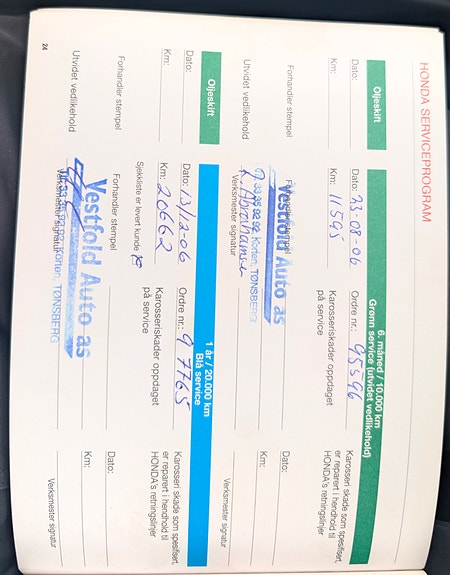 HONDA SERVICEPROGRAM
Oljeskift
Dato:
Km:
Forhandler stempel
Utvidet vedlikehold
6. måned / 10.000 km
Grønn service (utvidet vedlikehold)
Dato: 23-08-06
Km: 11595
Forhandler stempel
Vestfold Auto as
Tlf. 33 35 92 92, Korten, TØNSBERG
K. Abrahamsen
Verksmester signatur
Ordre nr.: 95396
Karosseriskader oppdaget
på service
Karosseri skade som spesifisert,
er reparert i hendhold til
HONDA's retningslinjer
Dato:
Km:
Verksmester signatur
Oljeskift
Dato:
Km:
Forhandler stempel
Utvidet vedlikehold
1 år / 20.000 km
Blå service
Dato: 13/12-06
Km: 20662
Sjekkliste er levert kunde
Forhandler stempel
Vestfold Auto as
33 35 92 92, Korten, TØNSBERG
Verksmester signatur
Ordre nr.: 97765
Karosseriskader oppdaget
på service
Karosseri skade som spesifisert,
er reparert i hendhold til
HONDA's retningslinjer
Dato:
Km:
Verksmester signatur
24